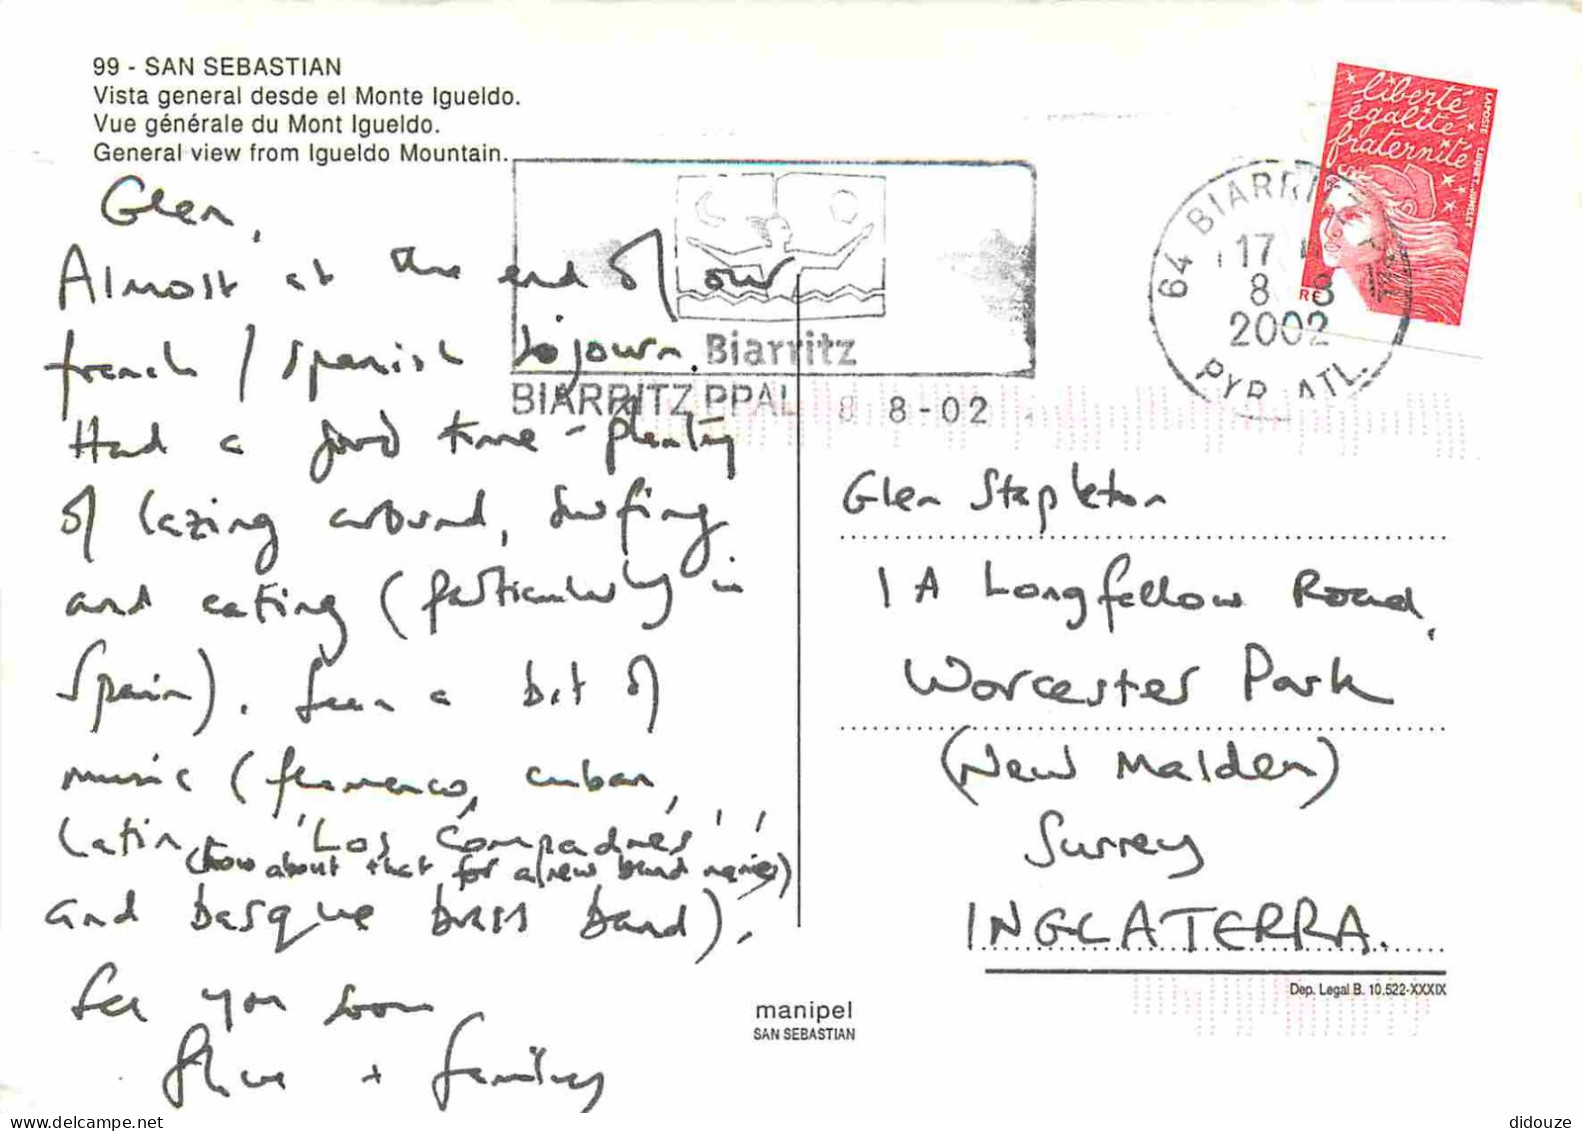 99 - SAN SEBASTIAN
Vista general desde el Monte Igueldo.
Vue générale du Mont Igueldo.
General view from Igueldo Mountain.
Glen,
Almost at the end of our
french / spanish sojourn.
Had a good time - plenty
of lazing around, surfing
and eating (particularly in
Spain). Seen a bit of
music (flamenco, cuban,
Latin - 'Los Compadres',
(how about that for a new band name)
and basque brass band).
See you soon
+ family
Biarritz
BIARRITZ PPAL 8 8-02
64 BIARRITZ
17
8 8
2002
PYR ATL.
liberté
égalité
fraternité
LAPOSTE LUQUET-JUMELET
RF
Glen Stapleton
1A Longfellow Road,
Worcester Park
(New Malden)
Surrey
INGLATERRA.
Dep. Legal B. 10.522-XXXIX
manipel
SAN SEBASTIAN
didouze